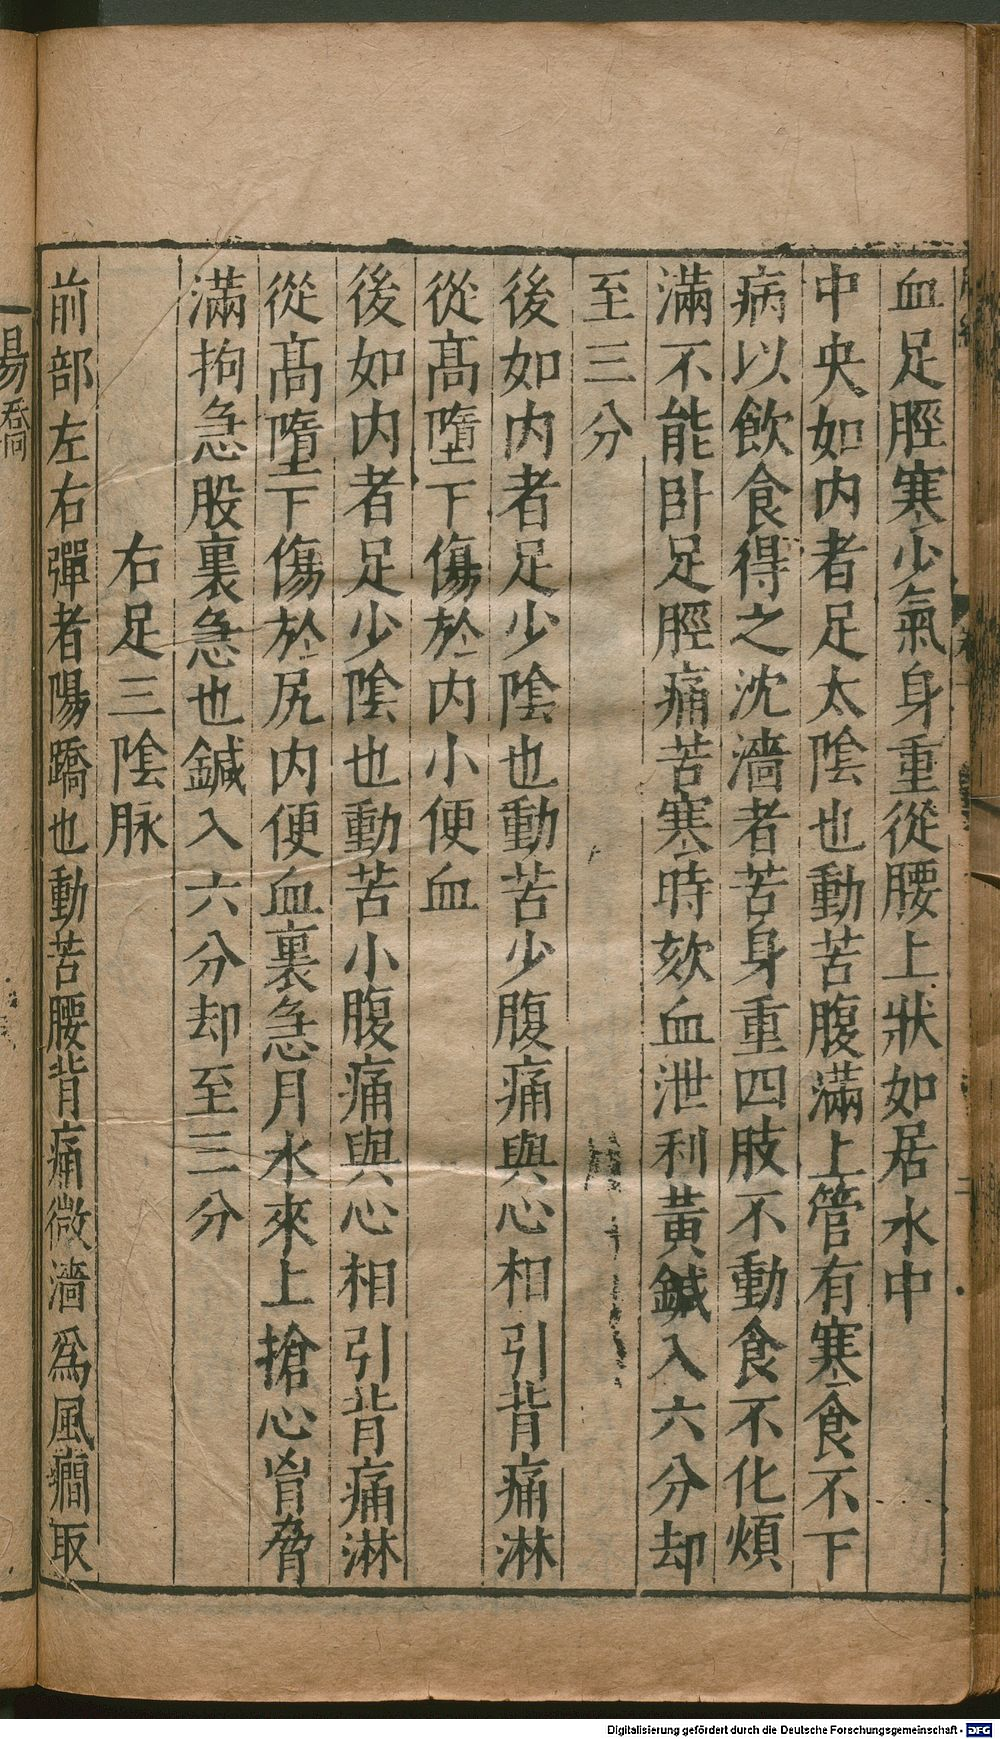 血足脛寒少氣身重從腰上狀如居水中
中央如内者足太陰也動苦腹滿上管有寒食不下
病以飲食得之沈濇者苦身重四肢不動食不化煩
滿不能卧足脛痛苦寒時欬血泄利黃鍼入六分却
至三分
後如内者足少陰也動苦少腹痛與心相引背痛淋
從髙墮下傷於内小便血
後如内者足少陰也動苦小腹痛與心相引背痛淋
從髙墮下傷於尻内便血裏急月水來上搶心胷脅
滿拘急股裏急也鍼入六分却至三分
右足三陰脉
前部左右彈者陽蹻也動苦腰背痛微濇爲風癇取
Digitalisierung gefördert durch die Deutsche Forschungsgemeinschaft - DFG